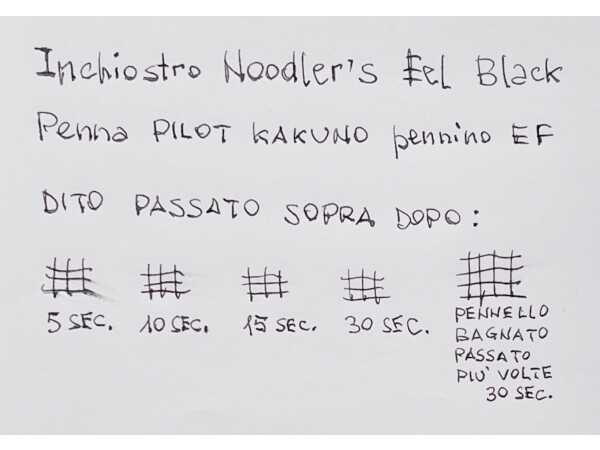 Inchiostro Noodler's Eel Black
Penna PILOT KAKUNO pennino EF
DITO PASSATO SOPRA DOPO:
5 SEC. 10 SEC. 15 SEC. 30 SEC.
PENNELLO
BAGNATO
PASSATO
PIU' VOLTE
30 SEC.